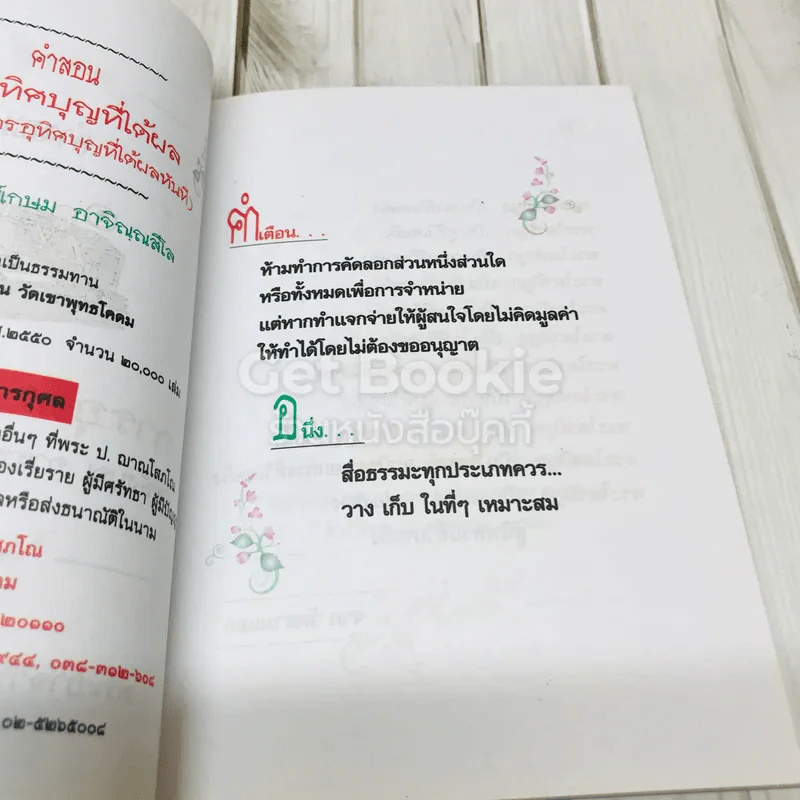 คำสอน
ทิศบุญที่ได้ผล
ารอุทิศบุญที่ได้ผลทันที)
เกษม อาจิณฺณสีโล
เป็นธรรมทาน
น วัดเขาพุทธโคดม
.๒๕๕๐ จำนวน ๒๐,๐๐๐ เล่ม
ารกุศล
อื่นๆ ที่พระ ป. ญาณโสภโณ
องเรี่ยราย ผู้มีศรัทธา
ลหรือส่งธนาณัติในนาม
สภโณ
ดม
๒๐๑๑๐
๙๔๔, ๐๓๘-๓๑๒-๖๐๘
๐๒-๕๒๖๕๐๐๘
คำเตือน...
ห้ามทำการคัดลอกส่วนหนึ่งส่วนใด
หรือทั้งหมดเพื่อการจำหน่าย
แต่หากทำแจกจ่ายให้ผู้สนใจโดยไม่คิดมูลค่า
ให้ทำได้โดยไม่ต้องขออนุญาต
Get Bookie
ร้านหนังสือบุ๊คกี้
อนึ่ง...
สื่อธรรมะทุกประเภทควร...
วาง เก็บ ในที่ๆ เหมาะสม